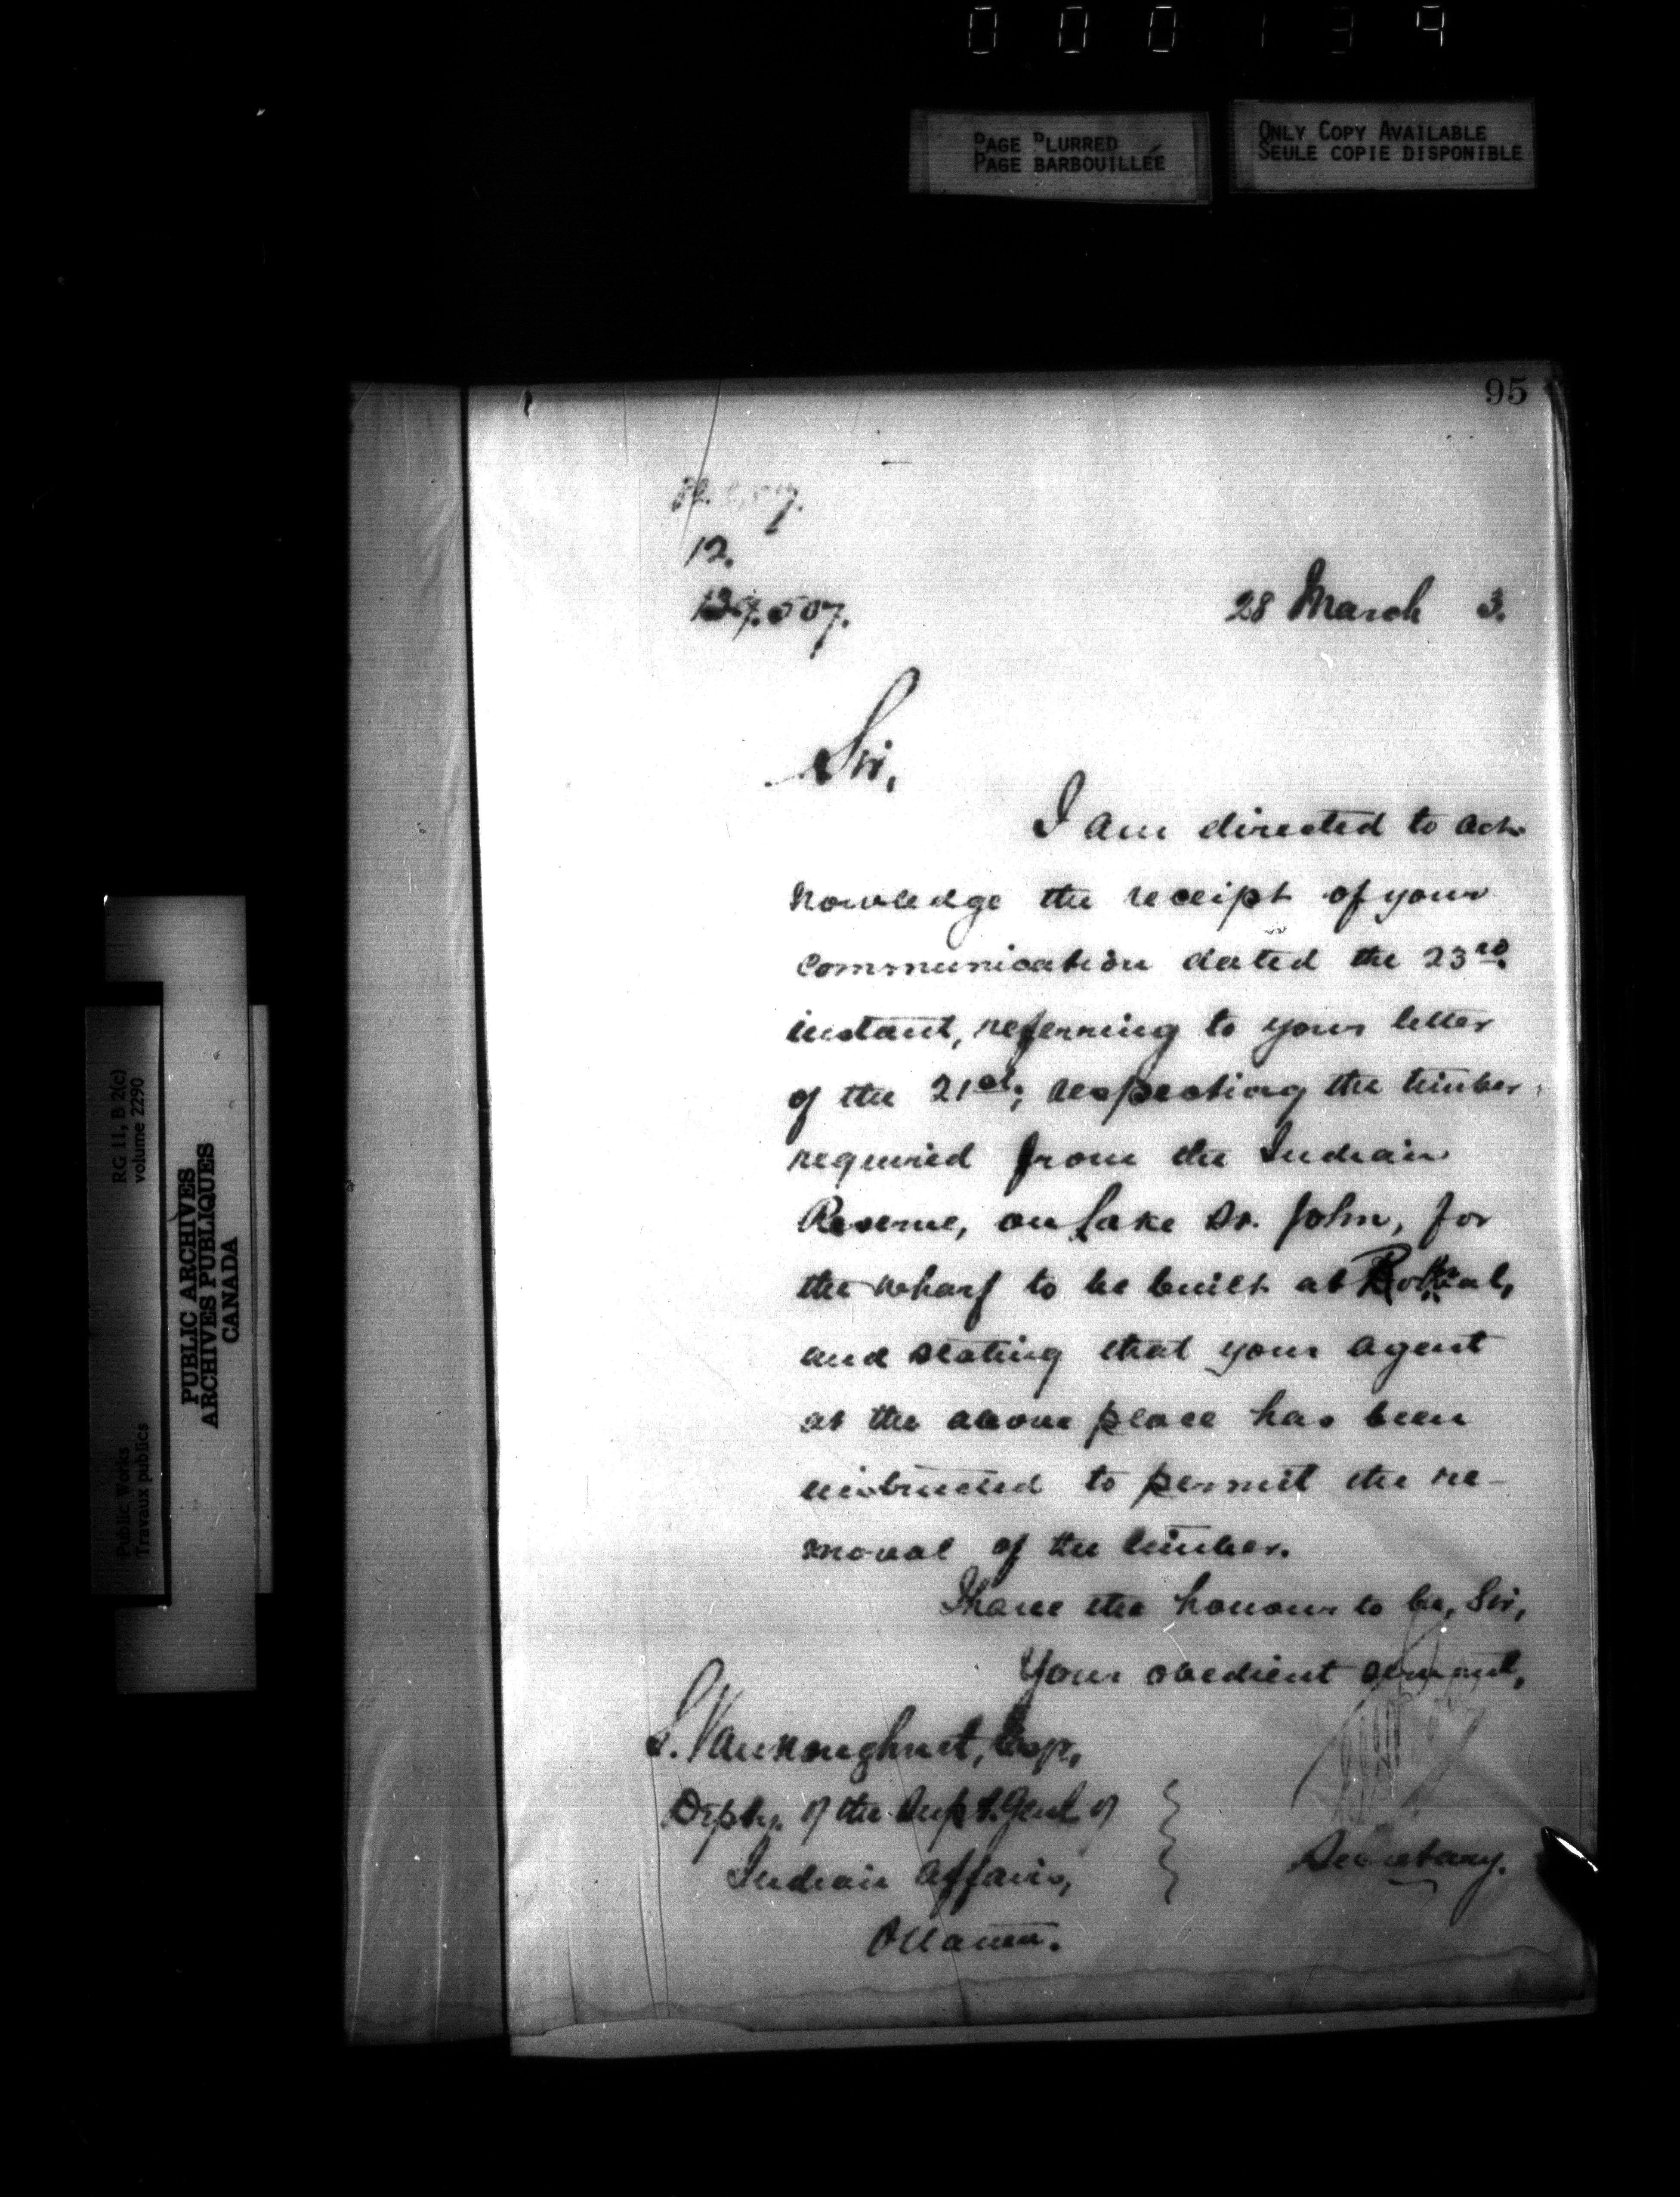 000139
PAGE BLURRED
PAGE BARBOUILLÉE
ONLY COPY AVAILABLE
SEULE COPIE DISPONIBLE
95
12.
139.507.
28 March 3.
Sir,
I am directed to ack-
nowledge the receipt of your
communication dated the 23rd.
instant, referring to your letter
of the 21st; respecting the timber
required from the Indian
Reserve, on Lake St. John, for
the wharf to be built at
and stating that your agent
at the above place has been
instructed to permit the re-
moval of the timber.
I have the honour to be, Sir,
Your obedient servant,
L. Vankoughnet, Esq,
Depty. of the Supt. Genl. of
Indian Affairs,
Ottawa.
Secretary.
RG 11, B 2(c)
volume 2290
Public Works
Travaux publics
PUBLIC ARCHIVES
ARCHIVES PUBLIQUES
CANADA